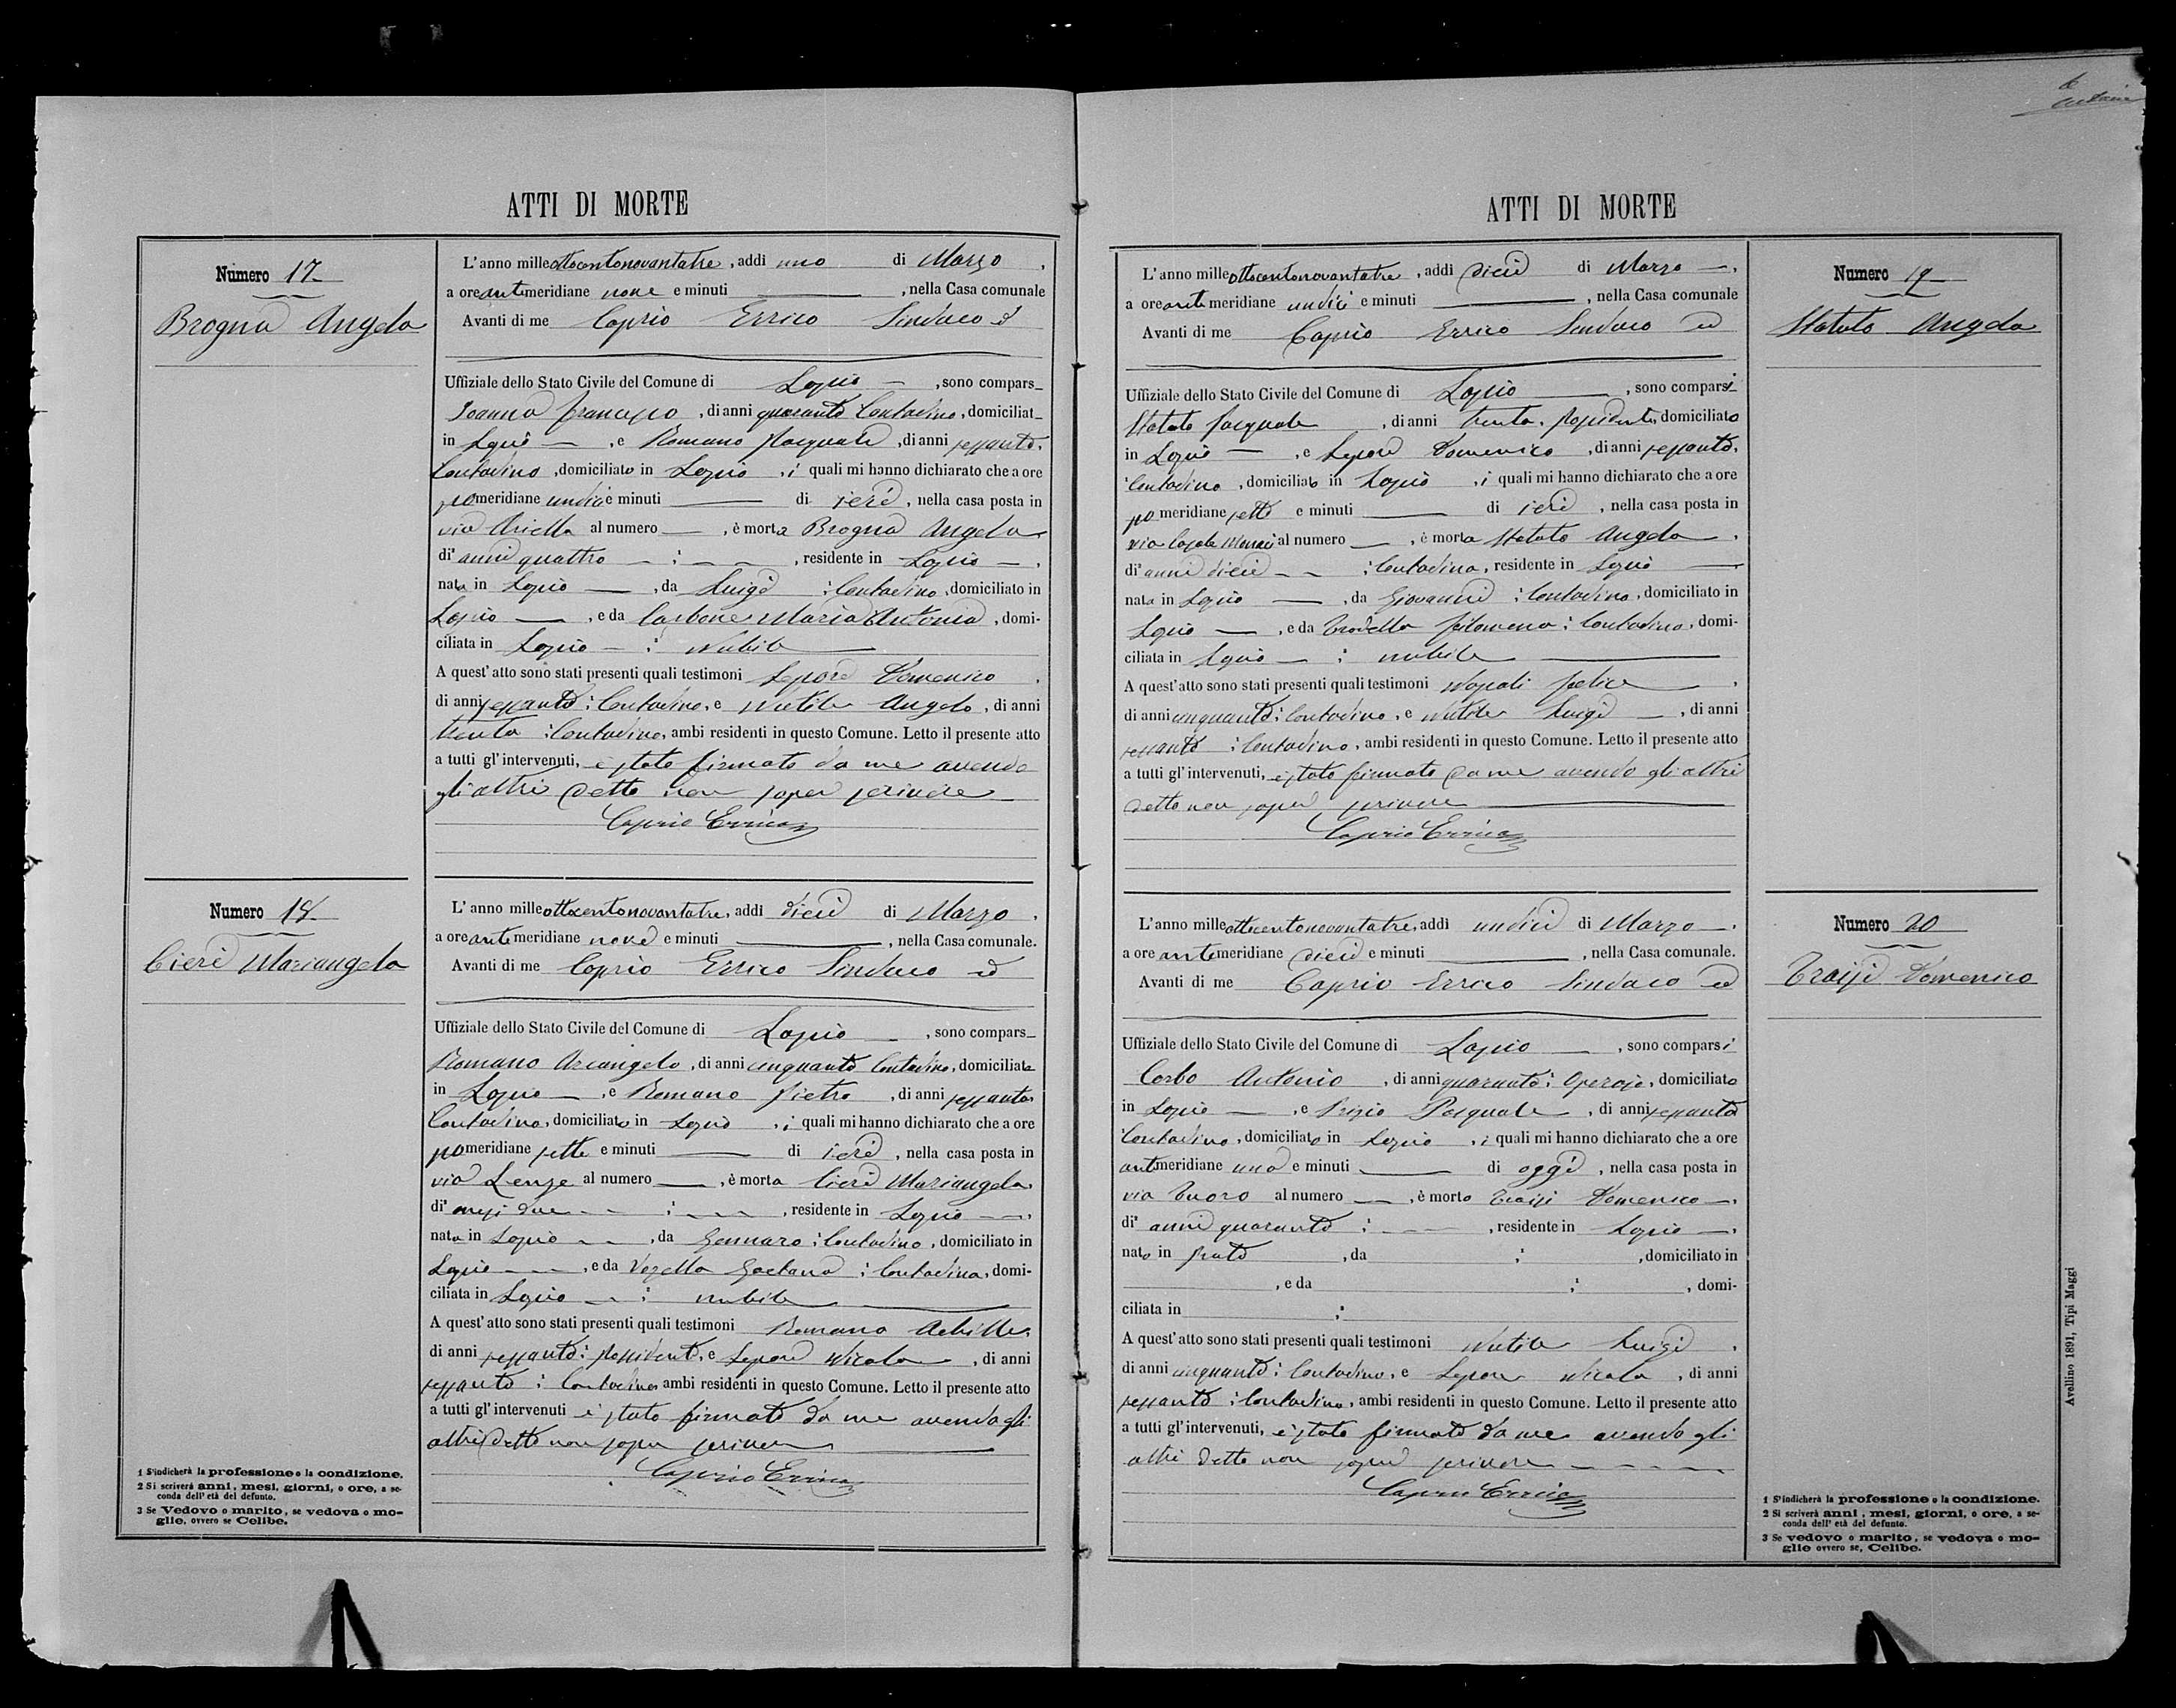 ATTI DI MORTE
Numero 17
Brogna Angela
L'anno milleottocentonovantatre, addì uno di Marzo,
a ore antemeridiane nove e minuti , nella Casa comunale
Avanti di me Caprio Errico Sindaco ed
Uffiziale dello Stato Civile del Comune di Lapio, sono compars
Ioanna Francesco, di anni quaranta Contadino, domiciliat
in Lapio, e Romano Pasquale, di anni sessanta,
Contadino, domiciliato in Lapio, i quali mi hanno dichiarato che a ore
pomeridiane undici e minuti di ieri, nella casa posta in
via Ariella al numero , è morta Brogna Angela
di anni quattro ; , residente in Lapio,
nata in Lapio, da Luigi ; Contadino, domiciliato in
Lapio, e da Carbone Maria Antonia, domi-
ciliata in Lapio ; Nubile
A quest'atto sono stati presenti quali testimoni Lepore Domenico,
di anni sessanta; Contadino, e Nutile Angelo, di anni
trenta; Contadino, ambi residenti in questo Comune. Letto il presente atto
a tutti gl'intervenuti, è stato firmato da me avendo
gli altri detto non saper scrivere
Caprio Errico
Numero 18
Cieri Mariangela
L'anno milleottocentonovantatre, addì dieci di Marzo,
a ore antemeridiane nove e minuti , nella Casa comunale.
Avanti di me Caprio Errico Sindaco ed
Uffiziale dello Stato Civile del Comune di Lapio, sono compars
Romano Arcangelo, di anni cinquanta Contadino, domiciliato
in Lapio, e Romano Pietro, di anni sessanta
Contadino, domiciliato in Lapio, i quali mi hanno dichiarato che a ore
pomeridiane sette e minuti di ieri, nella casa posta in
via Lenze al numero , è morta Cieri Mariangela,
di mesi due ; , residente in Lapio,
nata in Lapio, da Gennaro; Contadino, domiciliato in
Lapio, e da Vozella Gaetana; Contadina, domi-
ciliata in Lapio ; nubile
A quest'atto sono stati presenti quali testimoni Romano Achille,
di anni sessanta; Possidente, e Lepore Nicola, di anni
sessanta; Contadino, ambi residenti in questo Comune. Letto il presente atto
a tutti gl'intervenuti è stato firmato da me avendo gli
altri detto non saper scrivere
Caprio Errico
1 S'indicherà la professione o la condizione.
2 Si scriverà anni, mesi, giorni, o ore, a se-
conda dell'età del defunto.
3 Se Vedovo o marito, se vedova o mo-
glie, ovvero se Celibe.
ATTI DI MORTE
Numero 19
Statuto Angela
L'anno milleottocentonovantatre, addì dieci di Marzo,
a ore antemeridiane undici e minuti , nella Casa comunale
Avanti di me Caprio Errico Sindaco ed
Uffiziale dello Stato Civile del Comune di Lapio, sono comparsi
Statuto Pasquale, di anni trenta, Possidente, domiciliato
in Lapio, e Lepore Domenico, di anni sessanta,
Contadino, domiciliato in Lapio, i quali mi hanno dichiarato che a ore
pomeridiane sette e minuti di ieri, nella casa posta in
via Casale al numero , è morta Statuto Angela,
di anni dieci ; Contadina, residente in Lapio
nata in Lapio, da Giovanni; Contadino, domiciliato in
Lapio, e da Trodella Filomena; Contadina, domi-
ciliata in Lapio ; nubile
A quest'atto sono stati presenti quali testimoni Napoli Felice,
di anni cinquanta; Contadino, e Nutile Luigi, di anni
sessanta; Contadino, ambi residenti in questo Comune. Letto il presente atto
a tutti gl'intervenuti, è stato firmato da me avendo gli altri
detto non saper scrivere
Caprio Errico
Numero 20
Troisi Domenico
L'anno milleottocentonovantatre, addì undici di Marzo,
a ore antemeridiane dieci e minuti , nella Casa comunale.
Avanti di me Caprio Errico Sindaco ed
Uffiziale dello Stato Civile del Comune di Lapio, sono comparsi
Carbo Antonio, di anni quaranta; Operaio, domiciliato
in Lapio, e Pasquale, di anni sessanta
Contadino, domiciliato in Lapio, i quali mi hanno dichiarato che a ore
antimeridiane una e minuti di oggi, nella casa posta in
via Tuoro al numero , è morto Troisi Domenico,
di anni quaranta ; , residente in Lapio,
nato in Prata, da ; , domiciliato in
, e da ; , domi-
ciliata in ;
A quest'atto sono stati presenti quali testimoni Nutile Luigi,
di anni cinquanta; Contadino, e Lepore Nicola, di anni
sessanta; Contadino, ambi residenti in questo Comune. Letto il presente atto
a tutti gl'intervenuti, è stato firmato da me avendo gli
altri detto non saper scrivere
Caprio Errico
1 S'indicherà la professione o la condizione.
2 Si scriverà anni, mesi, giorni, o ore, a se-
conda dell'età del defunto.
3 Se vedovo o marito, se vedova o mo-
glie ovvero se, Celibe.
Avellino 1891, Tipi Maggi